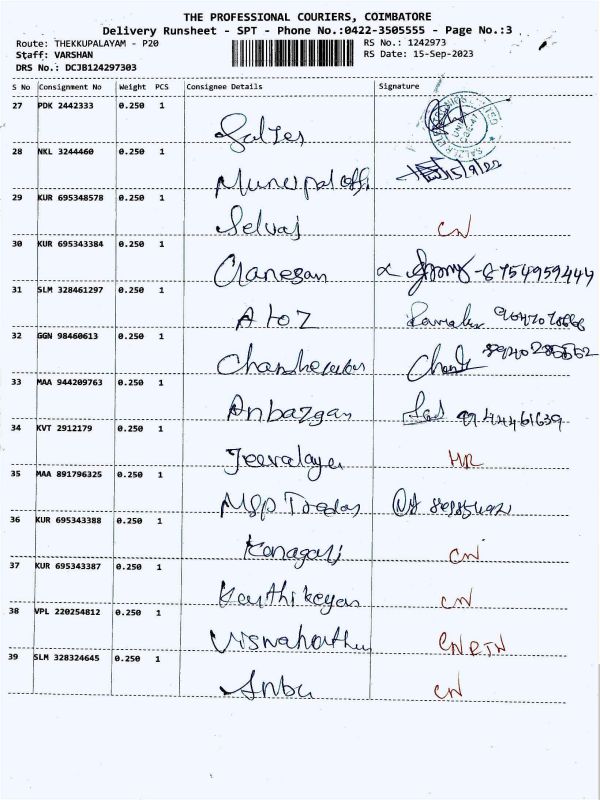 THE PROFESSIONAL COURIERS, COIMBATORE
Delivery Runsheet - SPT - Phone No.:0422-3505555 - Page No.:3
Route: THEKKUPALAYAM - P20 RS No.: 1242973
Staff: VARSHAN RS Date: 15-Sep-2023
DRS No.: DCJB124297303
S No Consignment No Weight PCS Consignee Details Signature
27 PDK 2442333 0.250 1
28 NKL 3244460 0.250 1
Muncipal offi
29 KUR 695348578 0.250 1
Selvaj CN
30 KUR 695343384 0.250 1
Ganesan - 8754959444
31 SLM 328461297 0.250 1
A to Z
32 GGN 98460613 0.250 1
33 MAA 944209763 0.250 1
Anbazgan
34 KVT 2912179 0.250 1
Jeevalaya HR
35 MAA 891796325 0.250 1
36 KUR 695343388 0.250 1
Kanagaraj CN
37 KUR 695343387 0.250 1
Karthikeyan CN
38 VPL 220254812 0.250 1
CN RTN
39 SLM 328324645 0.250 1
Anbu CN